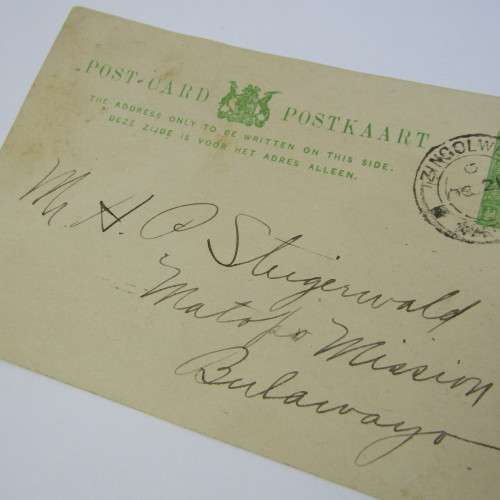 POST-CARD POSTKAART
THE ADDRESS ONLY TO BE WRITTEN ON THIS SIDE.
DEZE ZIJDE IS VOOR HET ADRES ALLEEN.
Mr. H. P. Steigerwald
Matopo Mission
Bulawayo